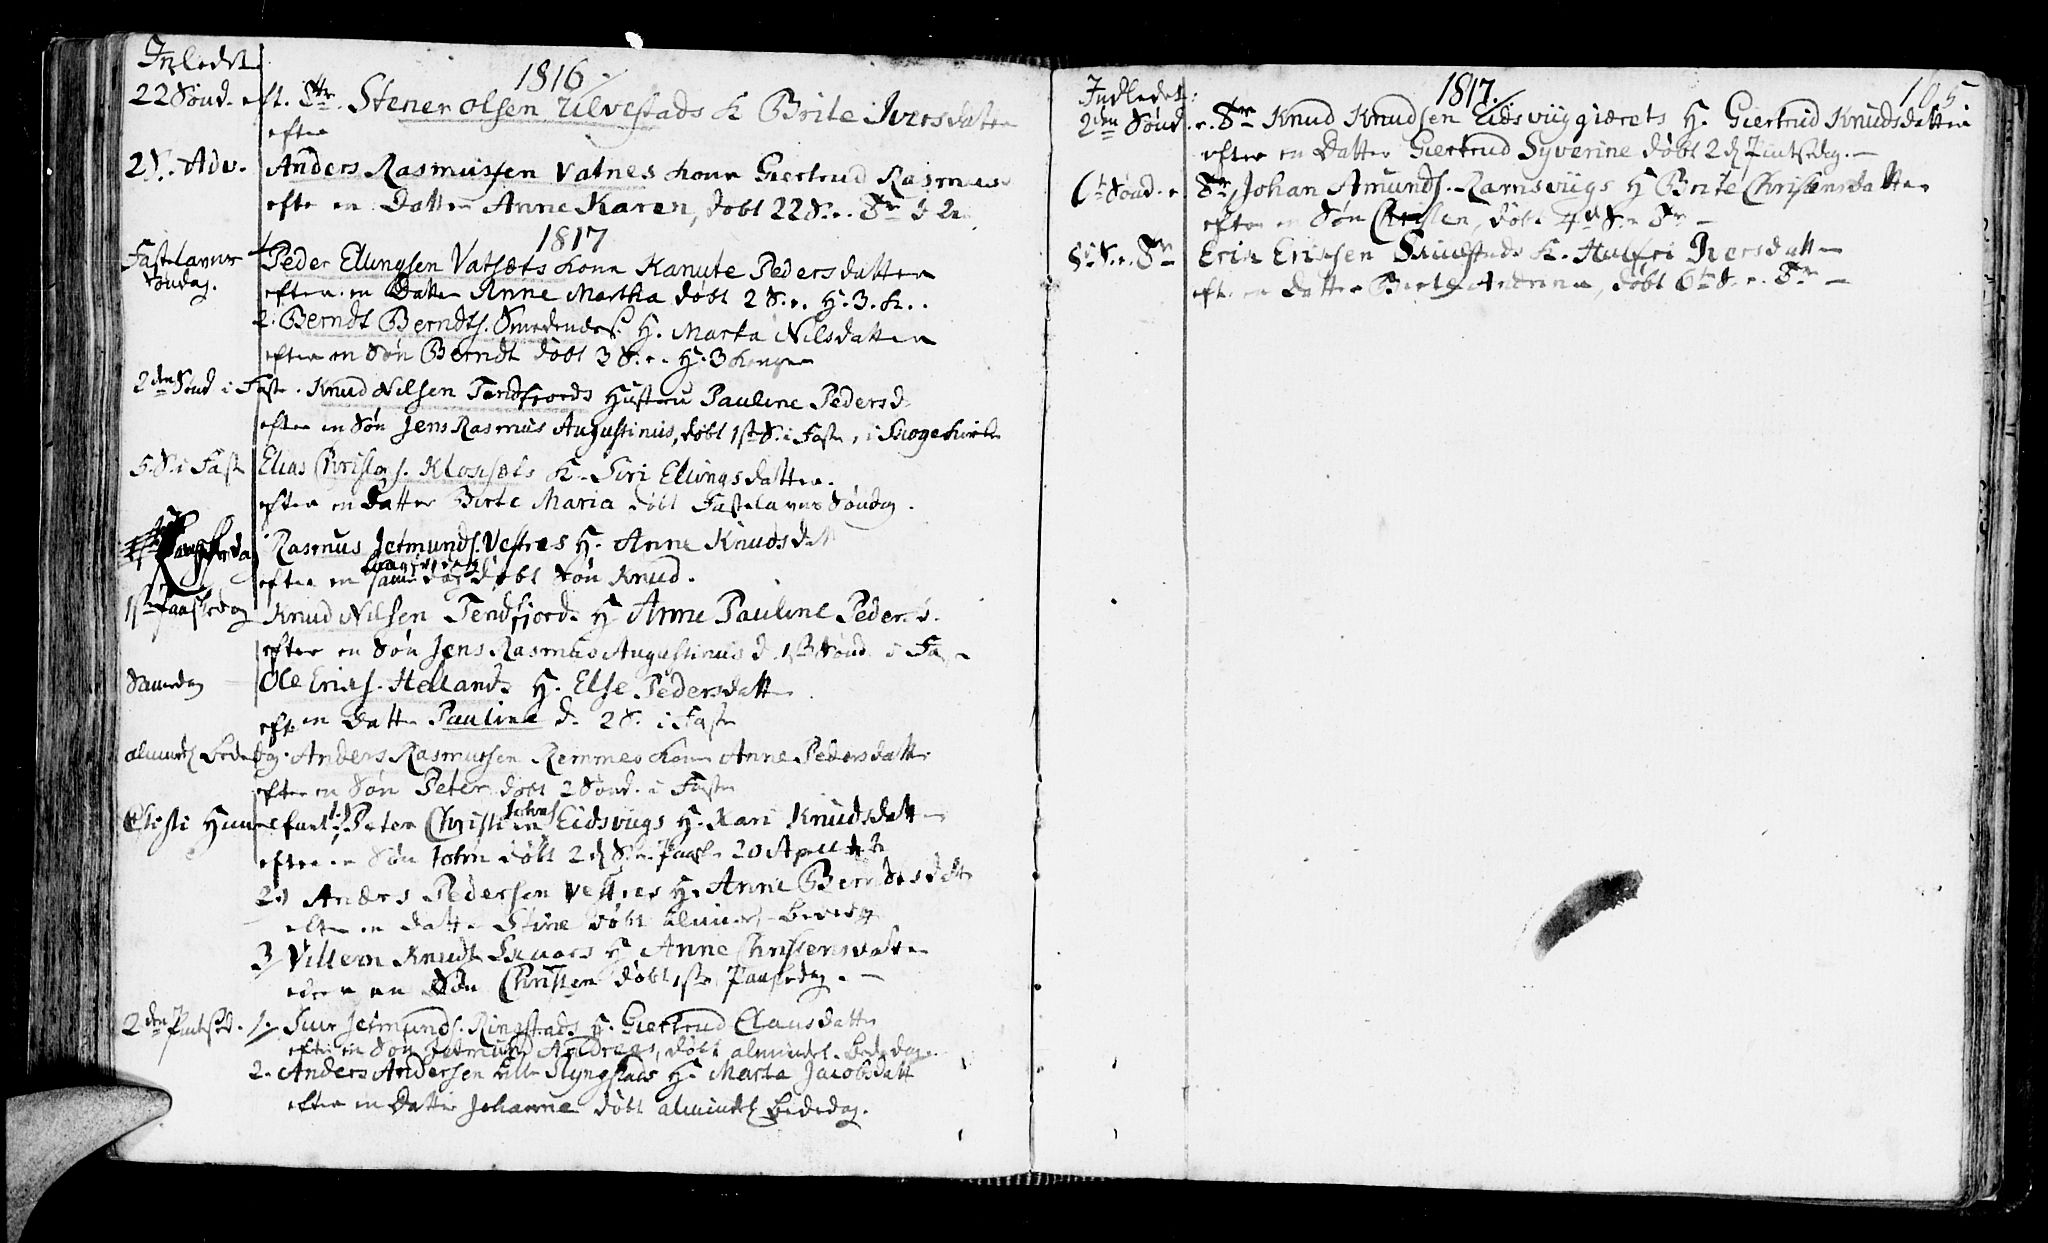 Indledet
1816
22 Sönd. eft. Tr. Stener Olsen Ulvestads K Brite Iversdatter
efter
2 S. Adv. Anders Rasmussen Vatnes Kone Giertrud Rasmus
efter en Datter Anne Karen, döbt 22 S. e. Tr
1817
Fastelavns Peder Ellingsen Vatsets Kone Kanute Pedersdatter
Söndag. efter en Datter Anne Martha döbt 2 S. e. H. 3. K.
2. Berndt Bernds. H. Marta Nilsdatter
efter en Sön Berndt döbt 3 S. e. H. 3 Konger
2den Sönd i Faste. Knud Nilsen Tendfjords Hustru Pauline Pedersd
efter en Sön Jens Rasmus Augustinus, döbt 1ste S. i Faste, i
5. S. i Fast Elias Christofs. Kloxsets K. Siri Ellingsdatter.
efter en Datter Birte Maria döbt Fastelavns Söndag.
Rasmus Jetmunds. Vestres H. Anne Knudsdatt
efter en döbt Sön Knud.
1ste Paaskedag Knud Nilsen Tendfjords H Anne Pauline Peders d.
efter en Sön Jens Rasmus Augustinus d. 1ste Sönd i Faste
Samedag Ole Eriks. Hellands H. Else Pedersdatter
eft en Datter Pauline d. 2 S. i Faste
almindl Bededag. Anders Rasmussen Remmes Kone Anne Pedersdatter
efter en Sön Peter döbt 2 Sönd. i Faste
Christi Himmelfart 1. Peter Christi Johns Eidsviigs H. Kari Knudsdatter
efter en Sön John döbt 2d S. e. Paaske 20 April
2) Anders Pedersen Vestres H. Anne Berndtsdatt
efter en Datter Stine döbt almind. Bededag
3 Villem Knuds H Anne Christensdatter
efter en Sön Christen döbt 1ste Paaskedag. —
2den Pintsed. 1. Siur Jetmunds. Ringstads H. Giertrud Clausdatter
efter en Sön Jetmund Andreas, döbt almindel. Bededag.
2. Anders Andersen Lille Slyngstads H. Marta Jacobsdatt
efter en Datter Johanne döbt almindl Bededag.
Indledet:
1817.
105
2den Sönd. e. Tr Knud Knudsen Eidsviiggiærets H. Giertrud Knudsdatter
efter en Datter Giertrud Syverine döbt 2d Pintsedag. —
6te Sönd. e Tr, Johan Amunds. Ramsviigs H Brite Christensdatter
efter en Sön Christen, döbt 4de S. e Tr —
8de S. e. Tr Erik Eriksen K. Iversdatter
eft. en Datter Birte Andrina, döbt 6te S. e. Tr —